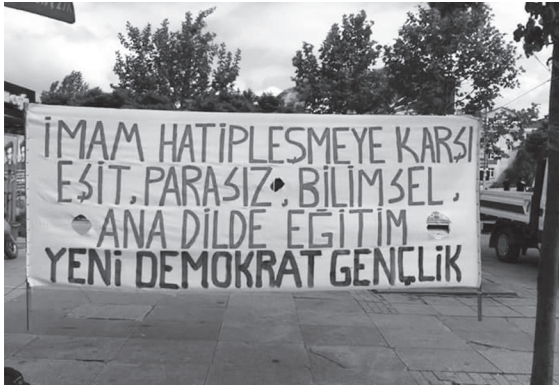 İMAM HATİPLEŞMEYE KARŞI
EŞİT, PARASIZ, BİLİMSEL,
ANA DİLDE EĞİTİM
YENİ DEMOKRAT GENÇLİK